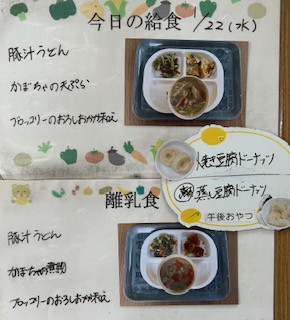 今日の給食 1/22(水)
豚汁うどん
かぼちゃの天ぷら
ブロッコリーのおろしおかか和え
焼き豆腐ドーナッツ
蒸し豆腐ドーナッツ
午後おやつ
離乳食
豚汁うどん
かぼちゃの煮物
ブロッコリーのおろしおかか和え